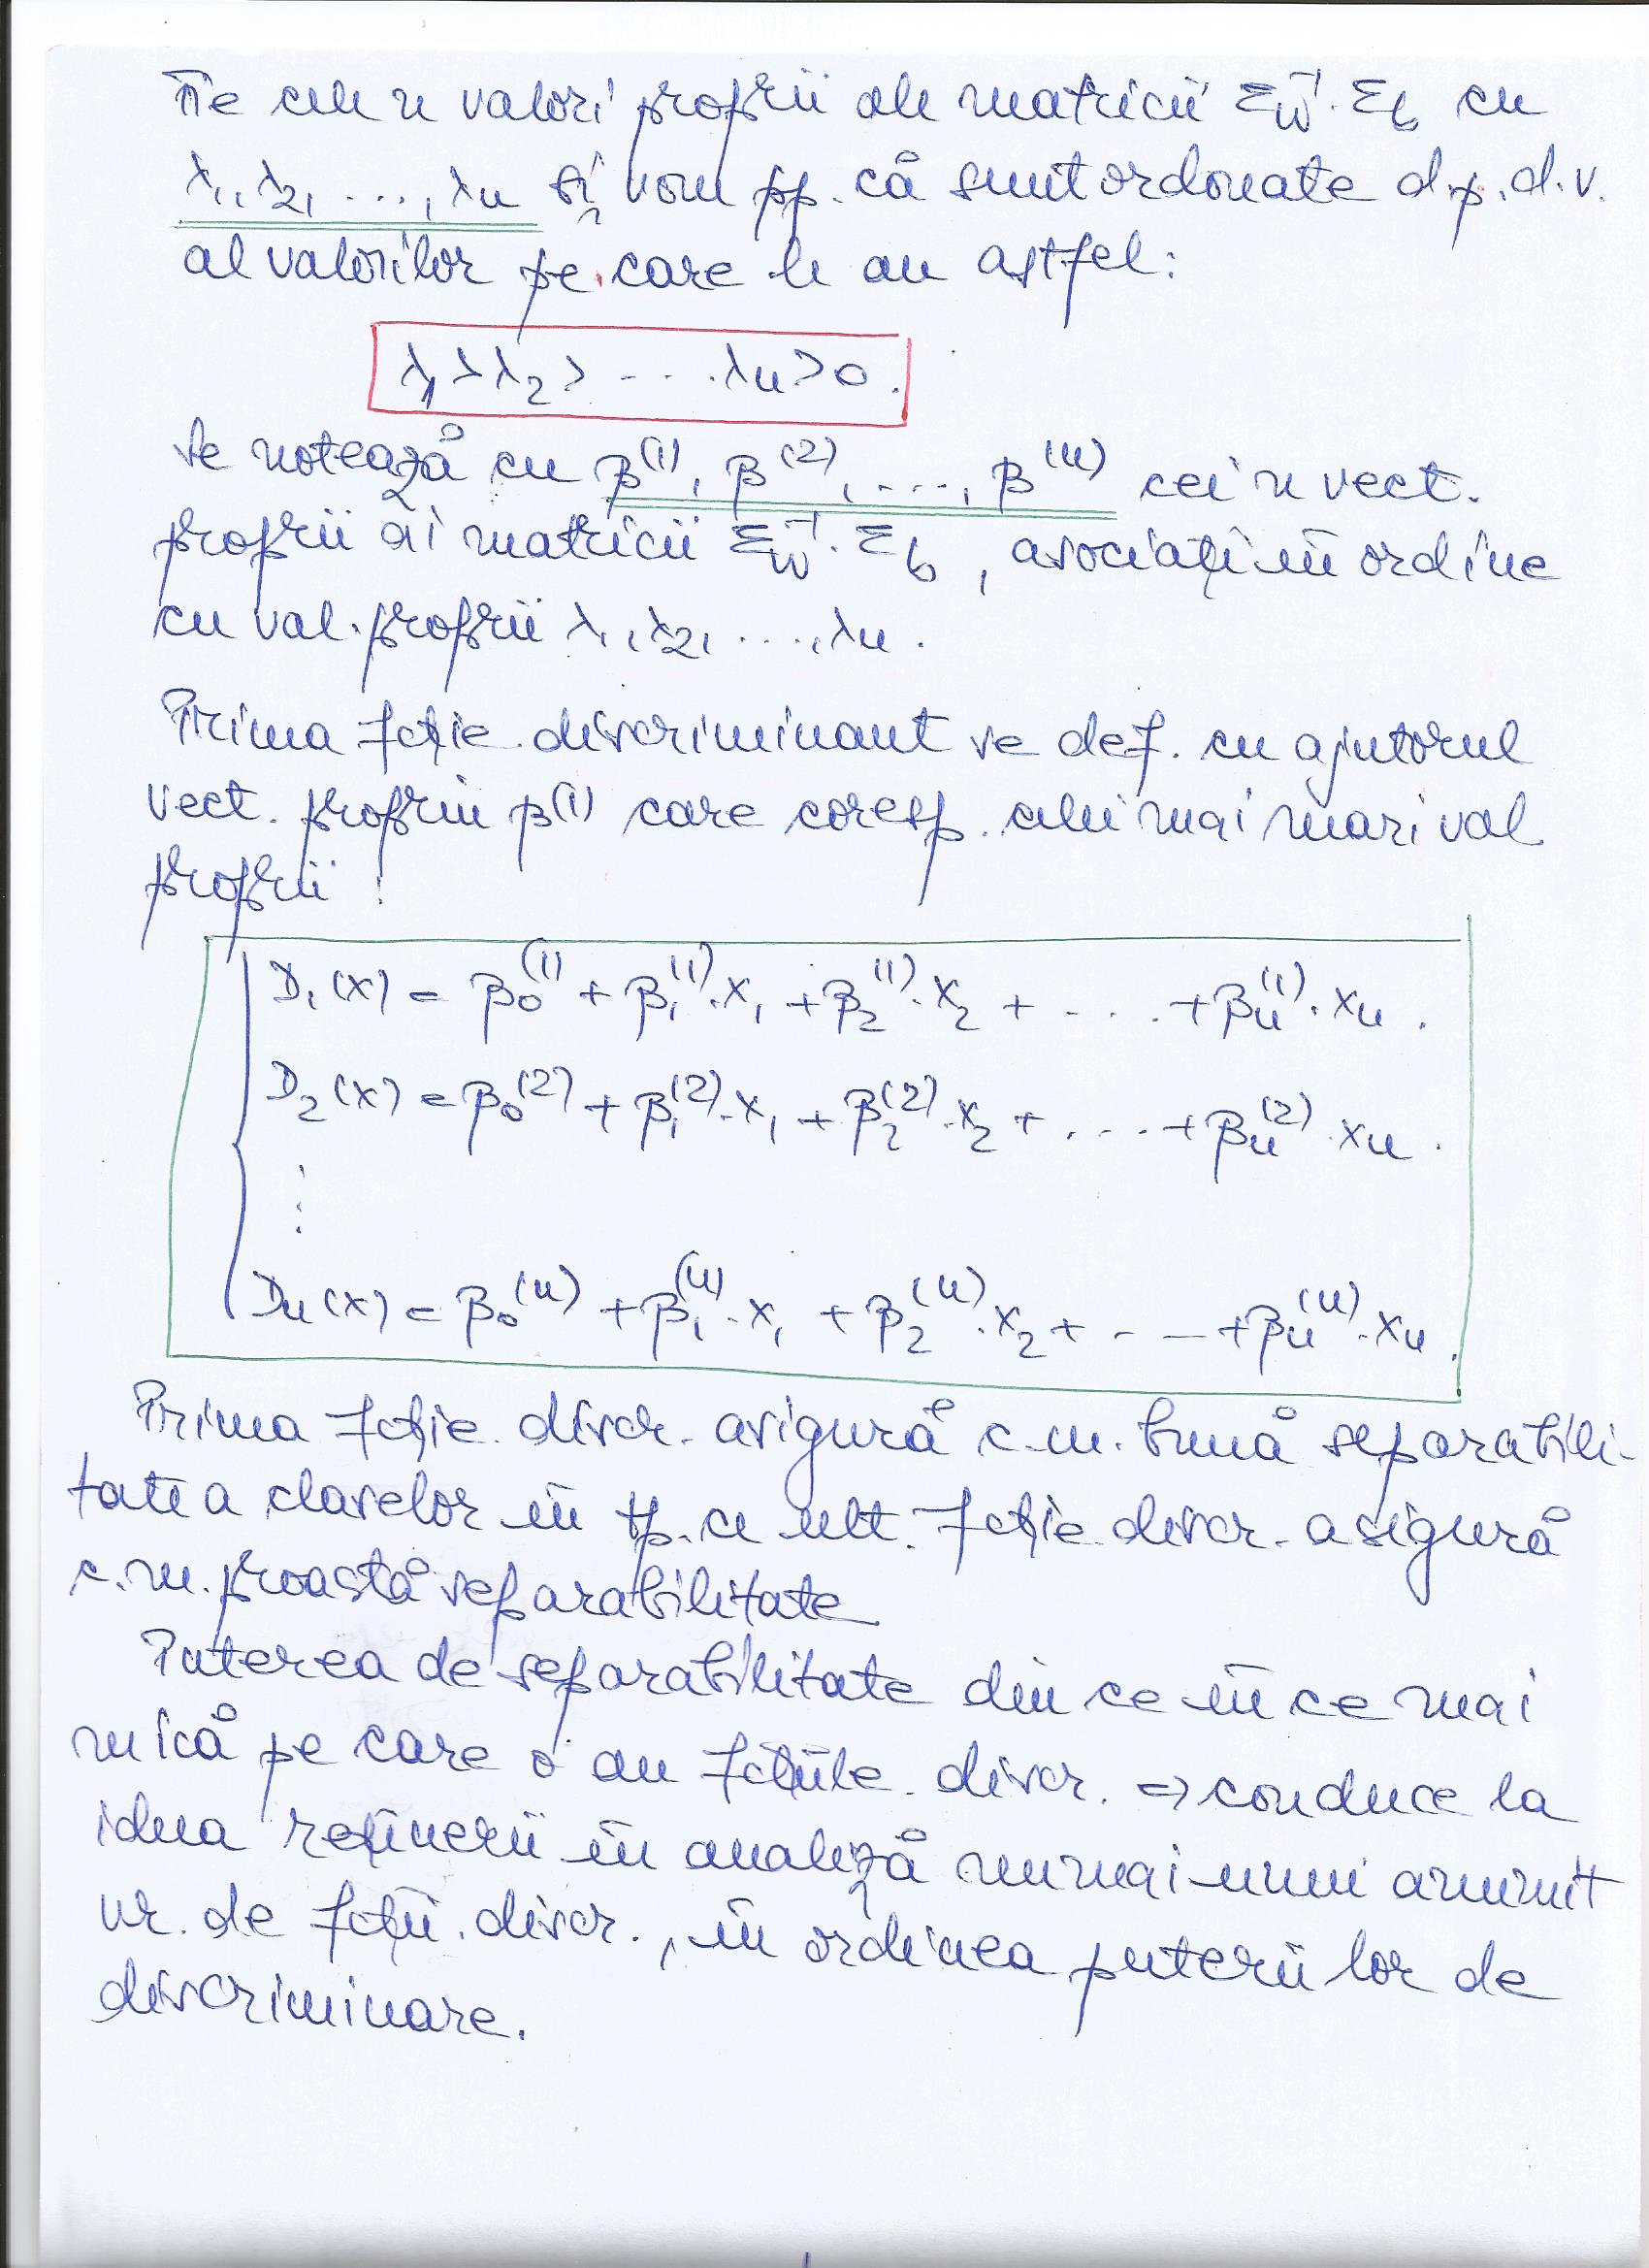 Fie cele n valori proprii ale matricii Σw⁻¹·Σb cu
λ1, λ2, ..., λn și vom pp. că sunt ordonate d.p.d.v.
al valorilor pe care le au astfel:
λ1 > λ2 > ... λn > 0.
Se notează cu β⁽¹⁾, β⁽²⁾, ..., β⁽ⁿ⁾ cei n vect.
proprii ai matricii Σw⁻¹·Σb, asociați în ordine
cu val. proprii λ1, λ2, ..., λn.
Prima fcție. discriminant se def. cu ajutorul
vect. propriu β⁽¹⁾ care coresp. celei mai mari val
proprii:
D1(x) = β0⁽¹⁾ + β1⁽¹⁾·x1 + β2⁽¹⁾·x2 + ... + βn⁽¹⁾·xn.
D2(x) = β0⁽²⁾ + β1⁽²⁾·x1 + β2⁽²⁾·x2 + ... + βn⁽²⁾·xn.
⋮
Dn(x) = β0⁽ⁿ⁾ + β1⁽ⁿ⁾·x1 + β2⁽ⁿ⁾·x2 + ... + βn⁽ⁿ⁾·xn.
Prima fcție. discr. asigură c.m. bună separabili-
tate a claselor în tp. ce ult. fcție. discr. asigură
c.m. proastă separabilitate
Puterea de separabilitate din ce în ce mai
mică pe care o au fcțiile. discr. => conduce la
ideea reținerii în analiză numai unui anumit
nr. de fcții. discr., în ordinea puterii lor de
discriminare.